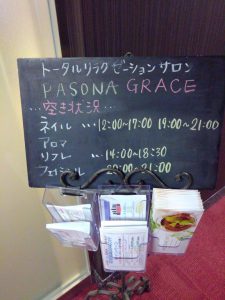 トータルリラクゼーションサロン
PASONA GRACE
...空き状況...
ネイル ... 12:00~17:00 19:00~21:00
アロマ
リフレ ... 14:00~18:30
フェイシャル 20:00~21:00